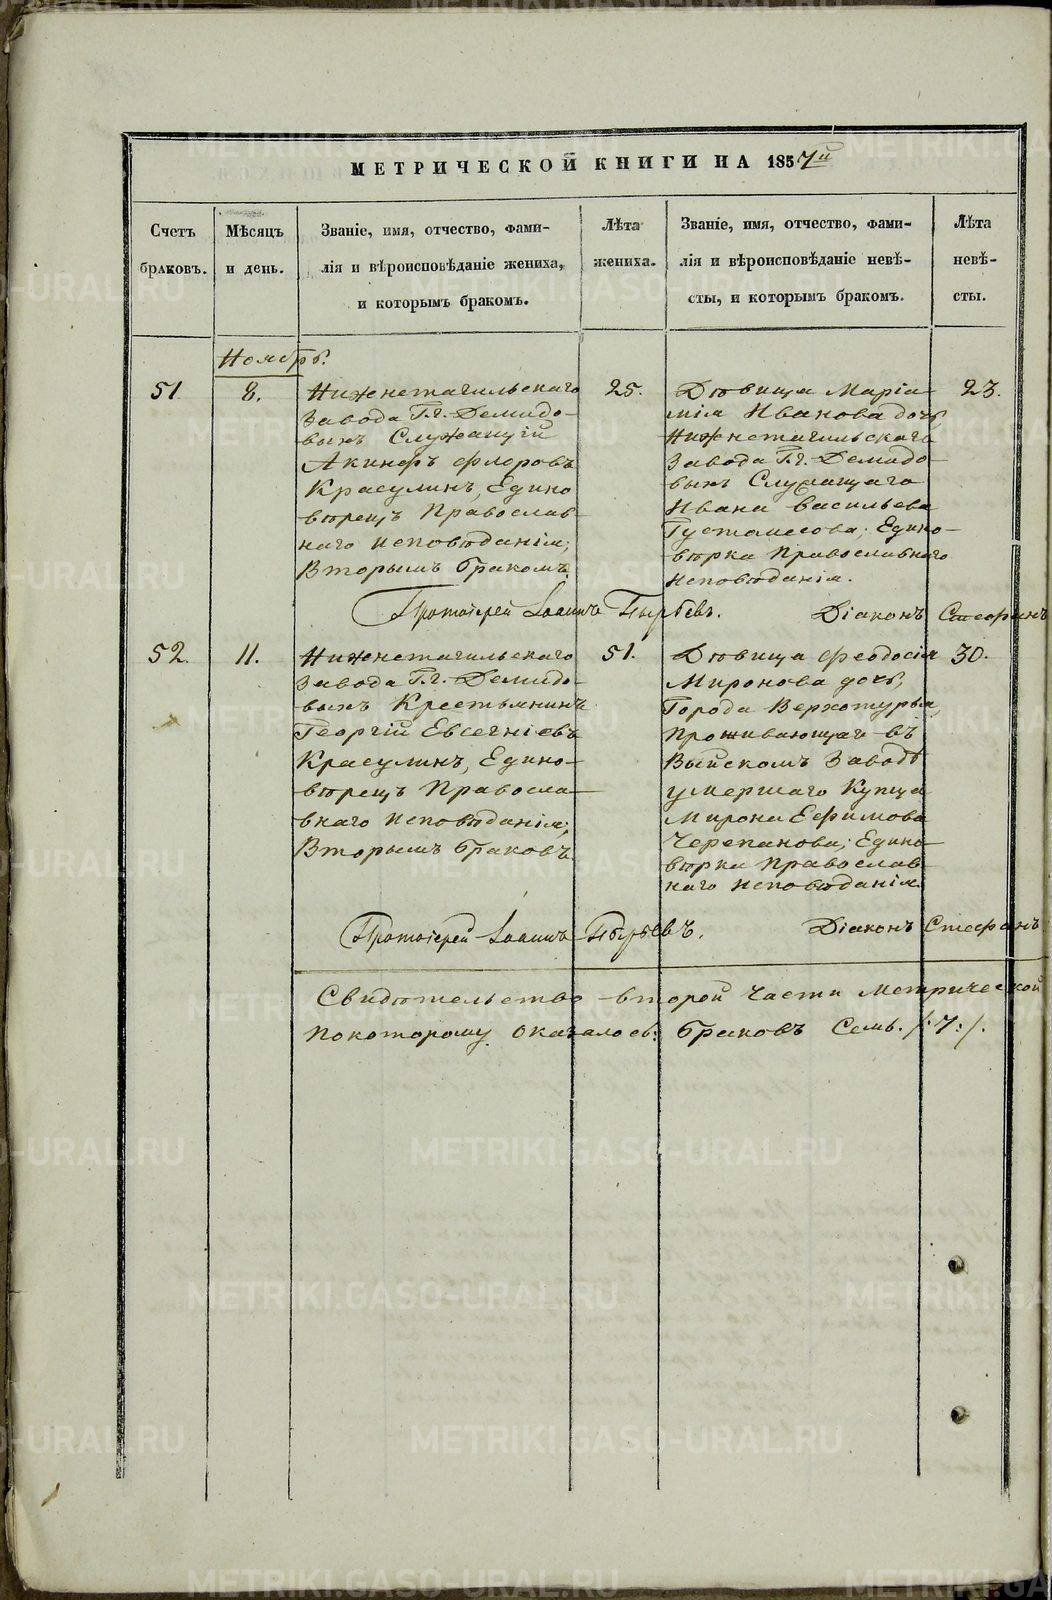 МЕТРИЧЕСКОЙ КНИГИ НА 1857й
Счетъ браковъ.
Мѣсяцъ и день.
Званіе, имя, отчество, фами-
лія и вѣроисповѣданіе жениха,
и которымъ бракомъ.
Лѣта жениха.
Званіе, имя, отчество, фами-
лія и вѣроисповѣданіе невѣ-
сты, и которымъ бракомъ.
Лѣта невѣ-
сты.
Ноябрь.
51
8.
Нижнетагильскаго
Завода Г.г. Демидо-
выхъ Служащій
Акинфъ Флоровъ
Красулинъ, Едино
вѣрецъ Православ-
наго исповѣданія;
Вторымъ бракомъ.
25.
Дѣвица Маріа-
мія Иванова дочь,
Нижнетагильскаго
Завода Г.г. Демидо-
выхъ Служащаго
Ивана Васильева
Густомесова; Едино-
вѣрка Православнаго
исповѣданія.
23.
Протоіерей Іоаннъ Пырьевъ.
Діаконъ Стефанъ
52.
11.
Нижнетагильскаго
Завода Г.г. Демидо-
выхъ Крестьянинъ
Георгій Евсегніевъ
Красулинъ, Едино-
вѣрецъ Правосла-
внаго исповѣданія;
Вторымъ браковъ
51.
Дѣвица Феодосія
Миронова дочь,
Города Верхотурья,
Проживающаг въ
Выйскомъ Заводѣ
умершаго Купца
Мирона Ефимова
Черепанова; Едино-
вѣрка Православ-
наго исповѣданія.
30.
Протоіерей Іоаннъ Пырьевъ.
Діаконъ Стефанъ
Свидѣтельство второй части Метрической
покоторому оказалось: браковъ Семь. /:7:/.
METRIKI.GASO-URAL.RU